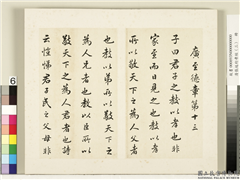 廣至德章第十三
子曰君子之教以孝也非
家至而日見之也教以孝
所以敬天下之為人父者
也教以悌所以敬天下之
為人兄者也教以臣所以
敬天下之為人君者也詩
云愷悌君子民之父母非
6